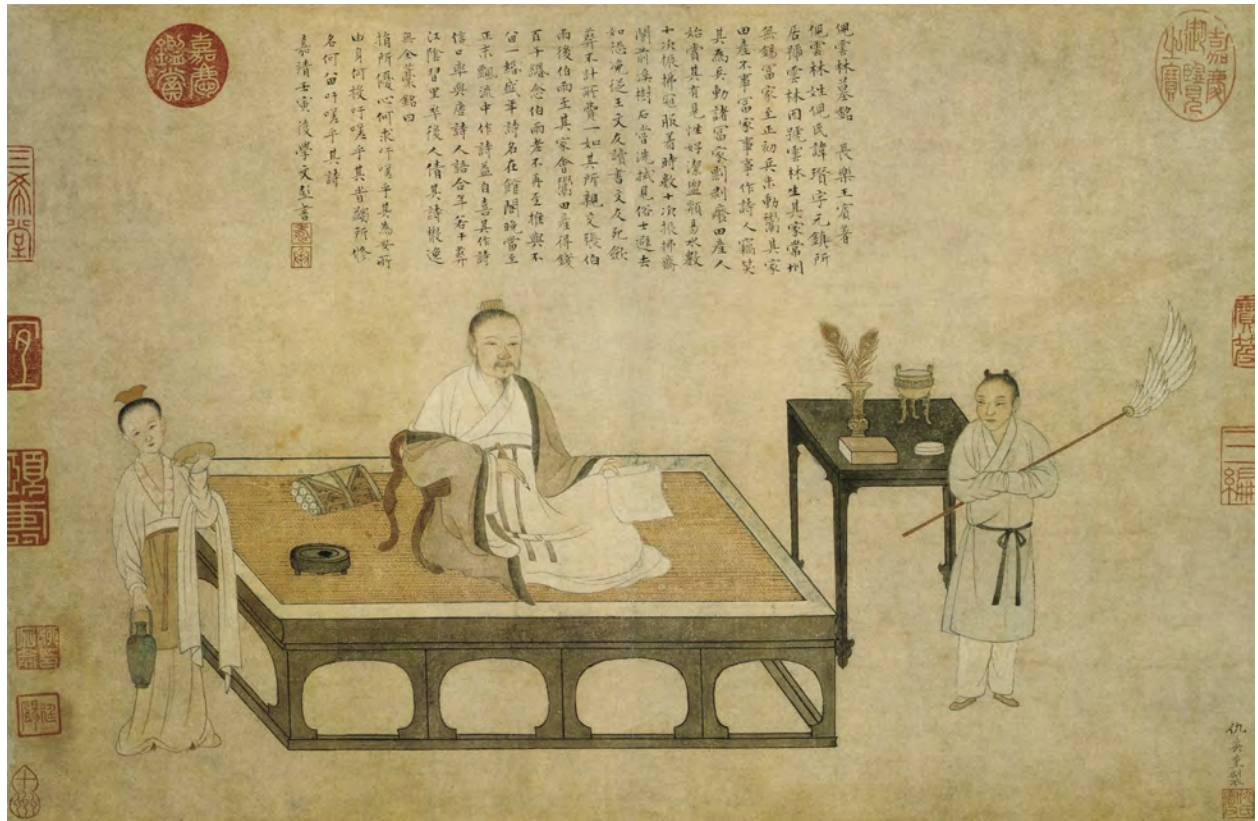 嘉慶御覽之寶
倪雲林墓銘 長樂王賓著
倪雲林姓倪氏諱瓚字元鎮所
居稱雲林因號雲林生其家常州
無錫富家至正初兵未動鬻其家
田產不事富家事事作詩人竊笑
其為兵動諸富家剽剝廢田產人
始賞其有見性好潔盥頮易水數
十次振拂冠服著時數十次振拂齋
閣前後樹石常洗拭見俗士避去
如恐浼從王文友讀書文友死斂
葬不計所費一如其所親交張伯
雨後伯雨至其家會鬻田產得錢
百千緡念伯雨老不再至推與不
留一緡盛年詩名在館閣晚當至
正末飄流中作詩益自喜其作詩
信口率與唐詩人語合年若干葬
江陰習里卒後人倩其詩散逸
無全藁銘曰
猗所懷心何求吁嗟乎其為女所
由身何投吁嗟乎其昔蠲所修
名何留吁嗟乎其詩
嘉靖壬寅後學文彭書
嘉慶鑑賞
三希堂
寶笈
三編
仇英重製